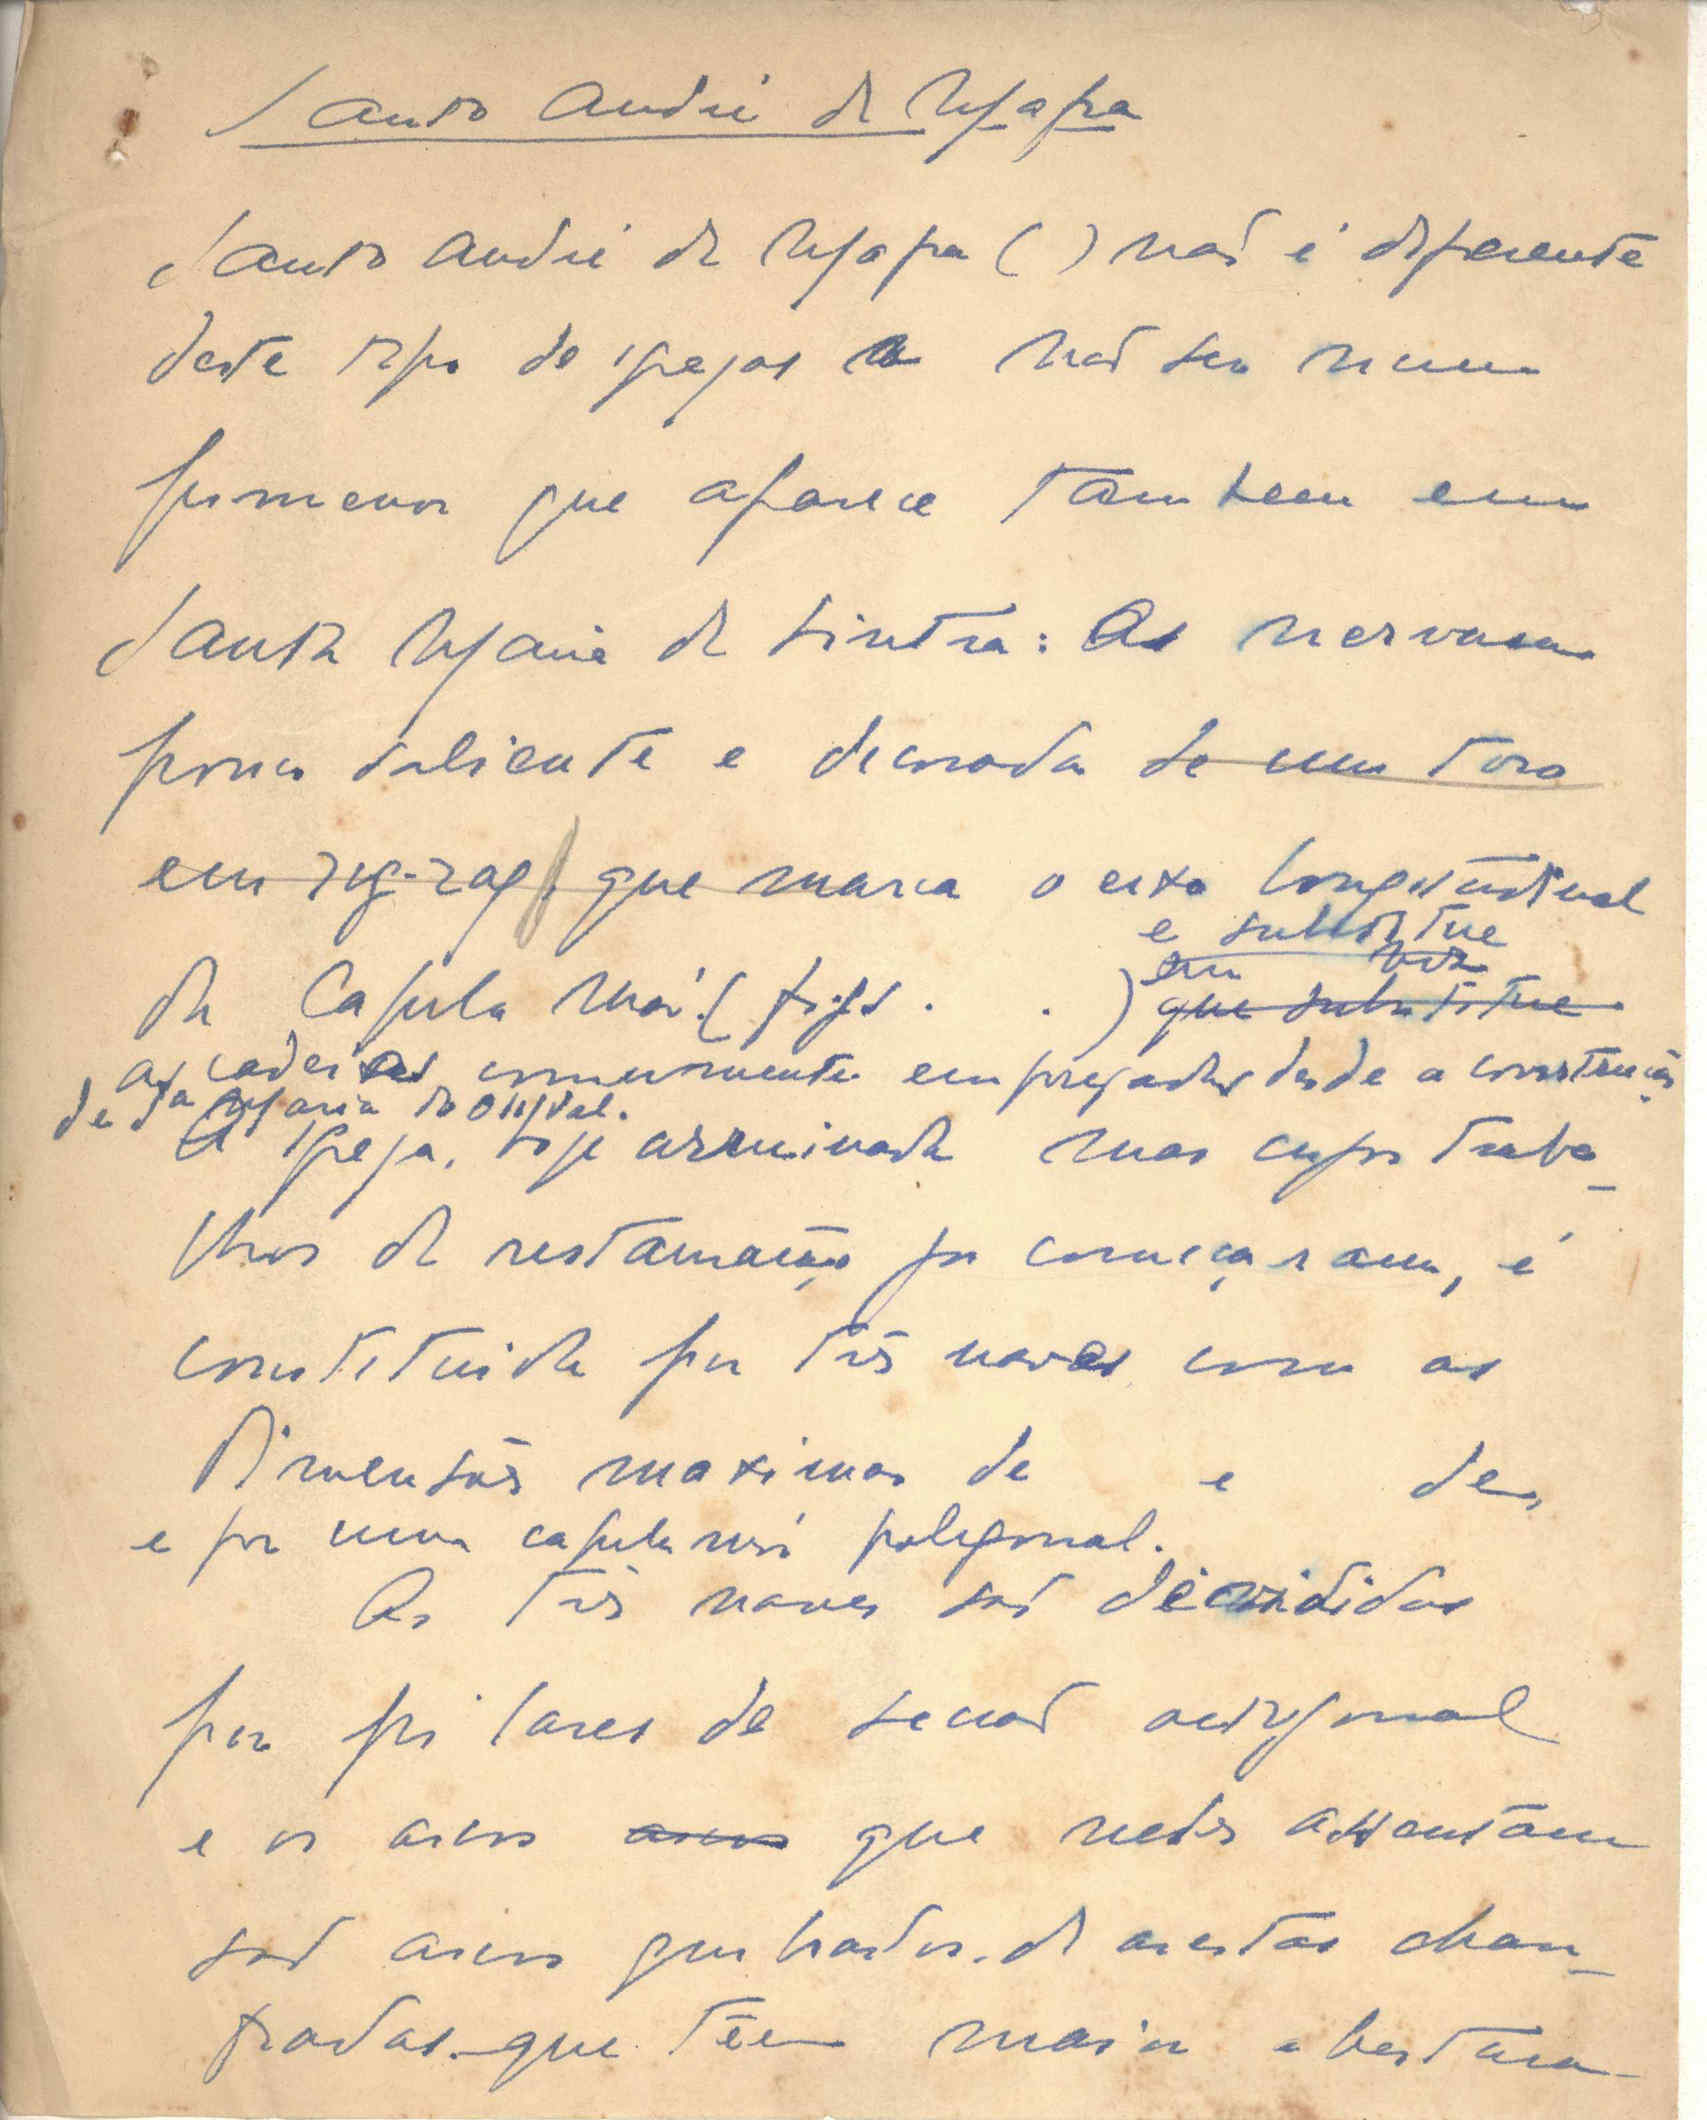 Santo André de Mafra
Santo André de Mafra ( ) não é diferente
deste tipo de igrejas não ser num
pormenor que aparece tambem em
Santa Maria de Sintra: As nervuras
pouco saliente e decorada de um toro
em zig-zag, que marca o eixo longitudinal
e substitue
em vez
da Capela Mór (figs. . ) que substitue
as cadeias comummente empregadas desde a construção
de Sta Maria do Olival.
A igreja, hoje arruinada mas cujos traba-
lhos de restauração ja começaram, é
constituida por três naves com as
Dimensões maximas de e de,
e por uma capela mór poligonal.
As três naves são divididas
por pilares de secção octogonal
e os arcos arcos que neles assentam
são arcos quebrados de arestas chan-
fradas que têem maior abertura